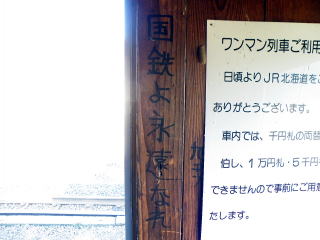 国鉄よ永遠なれ
ワンマン列車ご利用
日頃よりJR北海道をご
ありがとうございます。
車内では、千円札の両替
但し、1万円札・5千円
できませんので事前にご用意
たします。